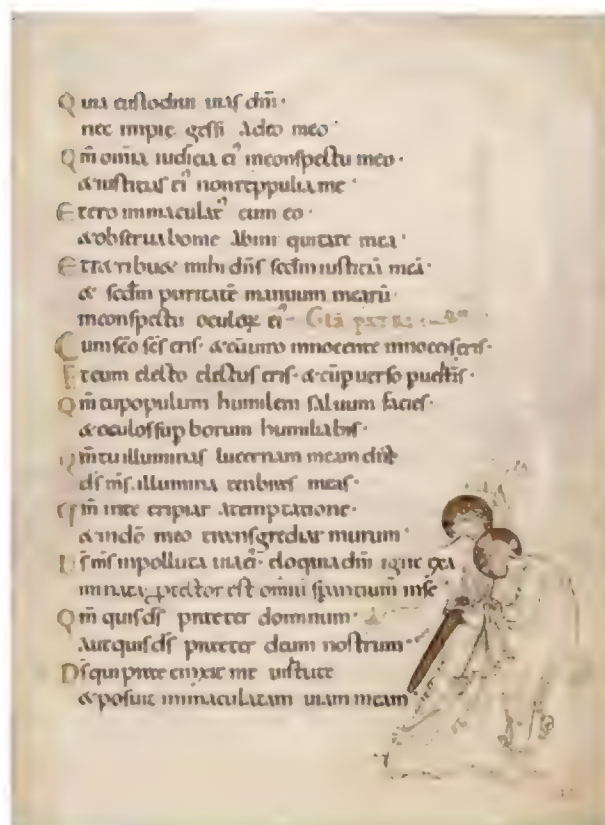 Quia custodiui uias dñi·
nec impie gessi Adeo meo·
Qm̄ omnia iudicia ei' inconspectu meo·
&iusticias ei' nonreppuli a me·
Etero immaculat' cum eo·
&obseruabome Abini quitate mea·
Etretribu& mihi dñs scdm iusticiā meā·
& scdm puritatē manuum mearū·
inconspectu oculoꝝ ei'· Glā patri
Cumsco scs eris· &cūuiro innocente innocēs eris·
Etcum electo electus eris· &cūpuerso
Qm̄ tupopulum humilem saluum facies·
&oculossup borum humiliabis·
Qm̄ tu illuminas lucernam meam dñe
ds ms. illumina tenbras meas·
Qm̄ inte eripiar Atemptatione·
&indō meo transgrediar murum·
Ds ms inpolluta uia ei'· eloquia dñi igne
minata, ptector est omniū spantium inse
Qm̄ quis ds preter domnum·
Autquis ds preter deum nostrum·
Dsqui me uirtute
&posuit immaculatam uiam meam